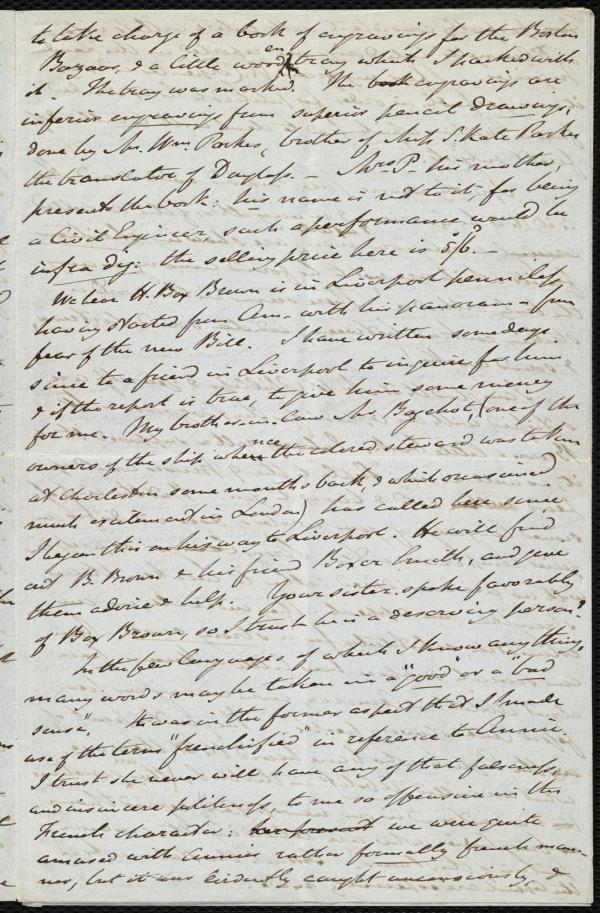 to take charge of a book of engravings for the Boston
Bazaar, & a little wooden tray which I packed with
it. The tray was marked. The book engravings are
inferior engravings from superior pencil drawings,
done by Mr. Wm. Parkes, brother of Miss S. Kate Parkes
the translator of Douglass. — Mrs. P- his mother,
presents the book: his name is not to it, for being
a Civil Engineer such a performance would be
infra dig: the selling price here is 5/6. —
We hear H. Box Brown is in Liverpool penniless,
having started from Am. with his panorama from
fear of the new Bill. I have written some days
since to a friend in Liverpool to inquire for him
& if the report is true, to give him some money
for me. My brother-in-law Mr. Bagehot, (one of the
owners of the ship whence the colored steward was taken
at Charleston some months back, & which occasioned
much excitement in London) has called here since
I began this on his way to Liverpool. He will find
out B. Brown & his friend Boxer Smith, and give
them advice & help. Your sister spoke favorably
of Box Brown, so I trust he is a deserving person?
In the few languages of which I know anything,
many words may be taken in a "good" or a "bad
sense". It was in the former aspect that I made
use of the term "frenchified" in reference to Annie.
I trust she never will have any of that falseness,
and insincere politeness, to me so offensive in the
French character: her present we were quite
amused with Annie's rather formally french man-
ner, but it was evidently caught unconsciously &